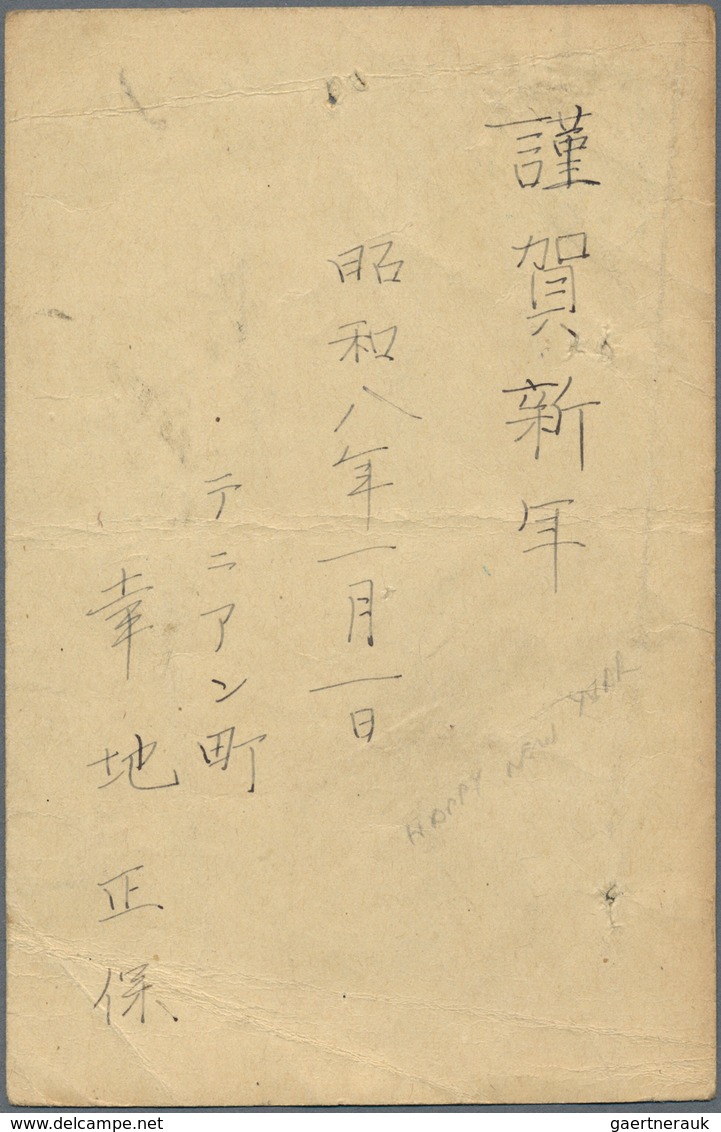 謹賀新年
昭和八年一月一日
テニアン町
幸地正保
HAPPY NEW YEAR
delcampe.net
gaertnerauk